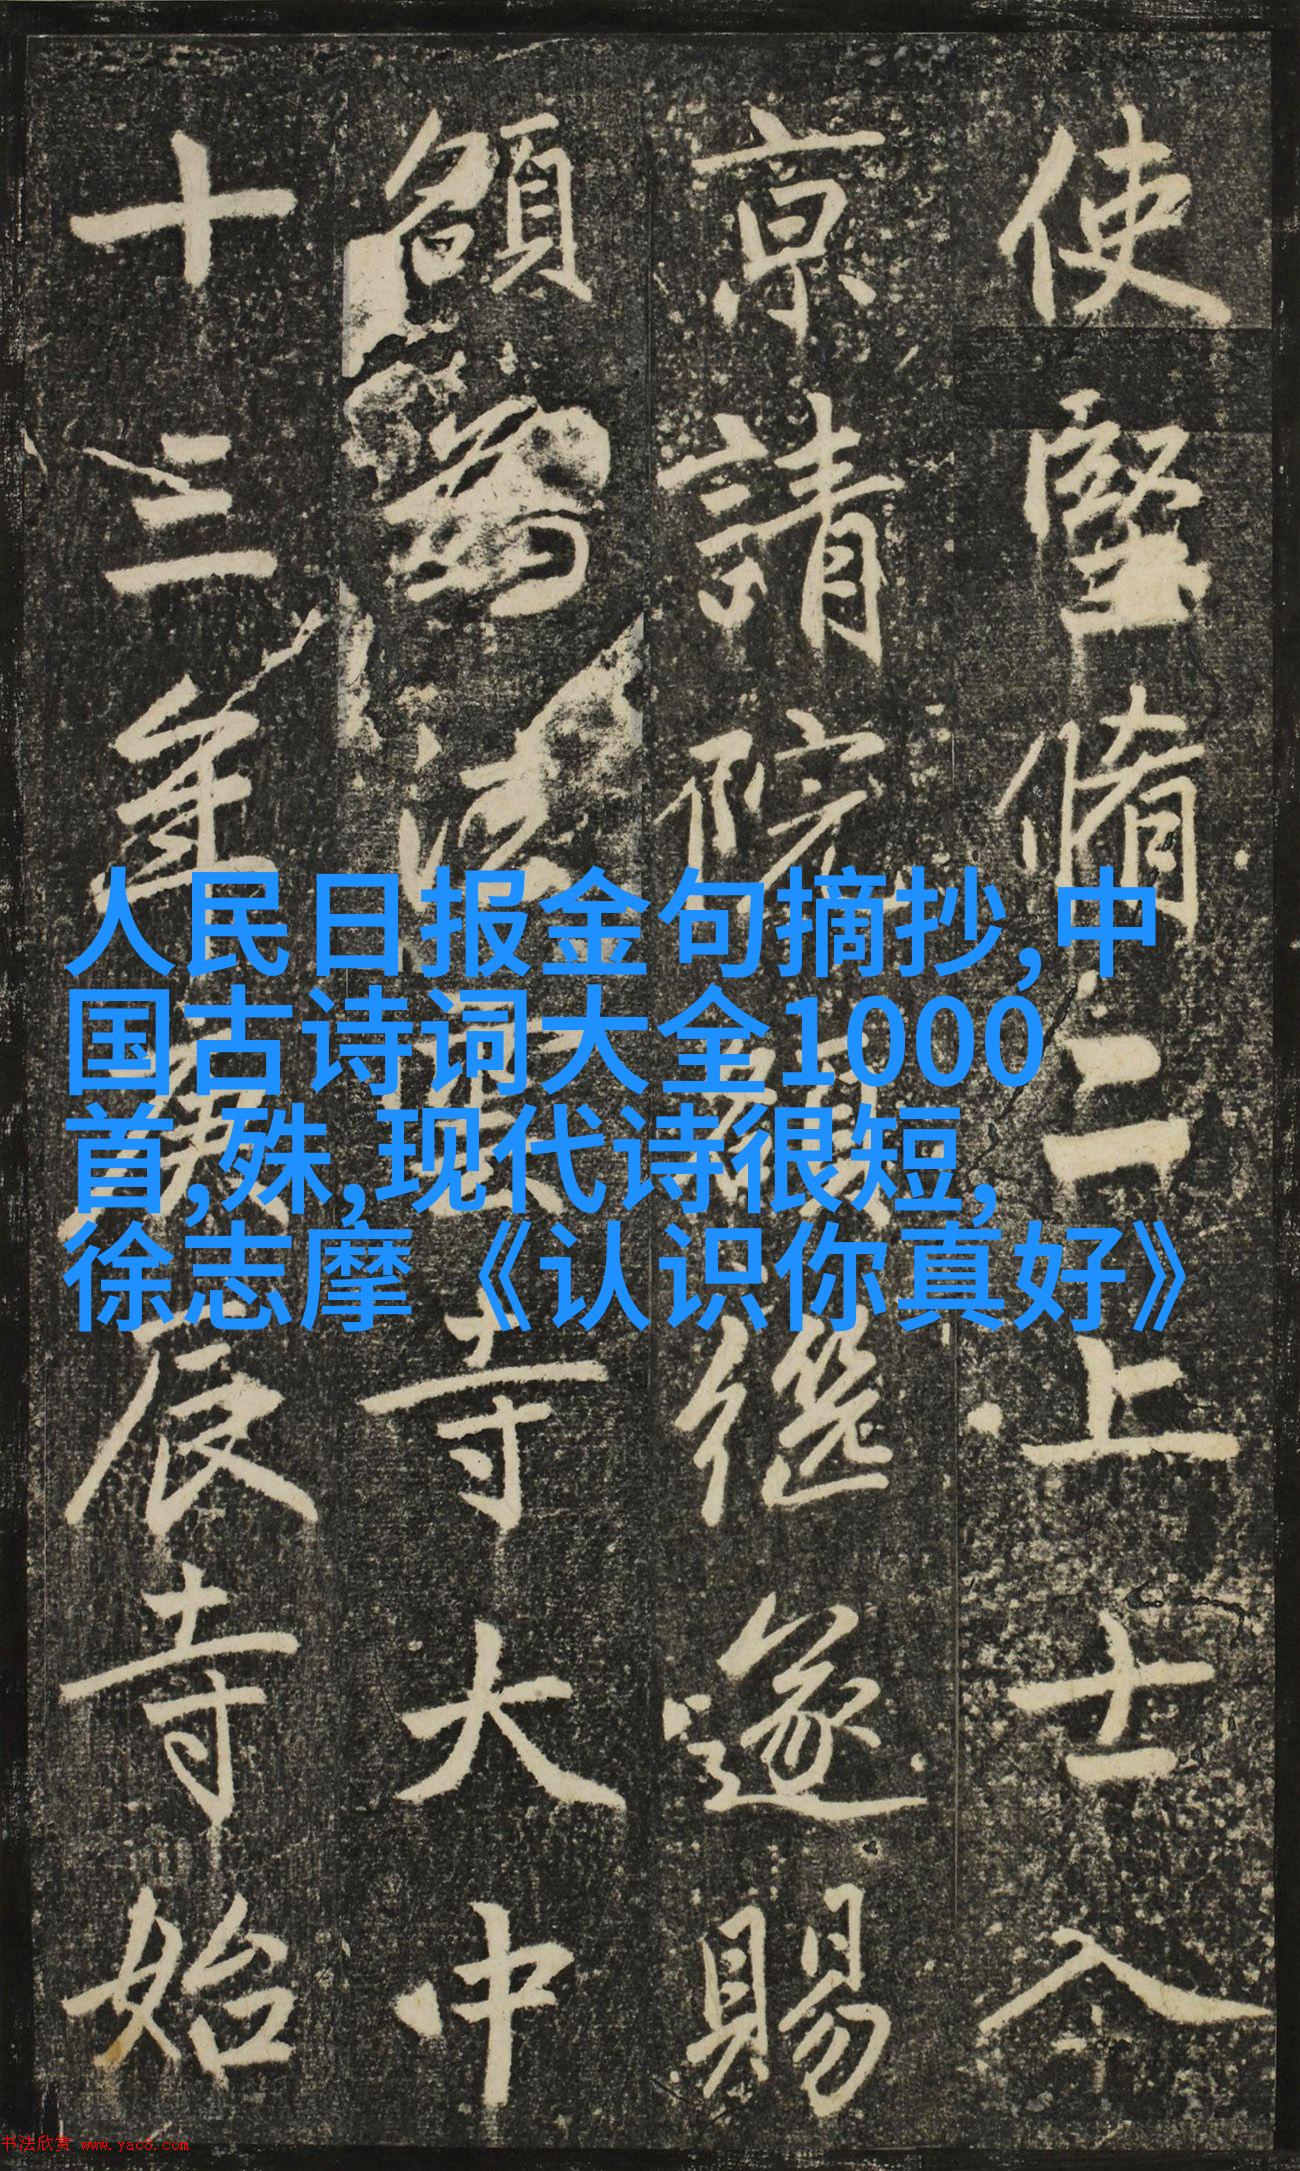 使堅脩二上士入
京請院額繼遂賜
額為法雲寺大中
十三年庚辰寺始
人民日报金句摘抄,中
国古诗词大全1000
首,殊,现代诗很短,
徐志摩《认识你真好》
书法欣赏 www.yac8.com